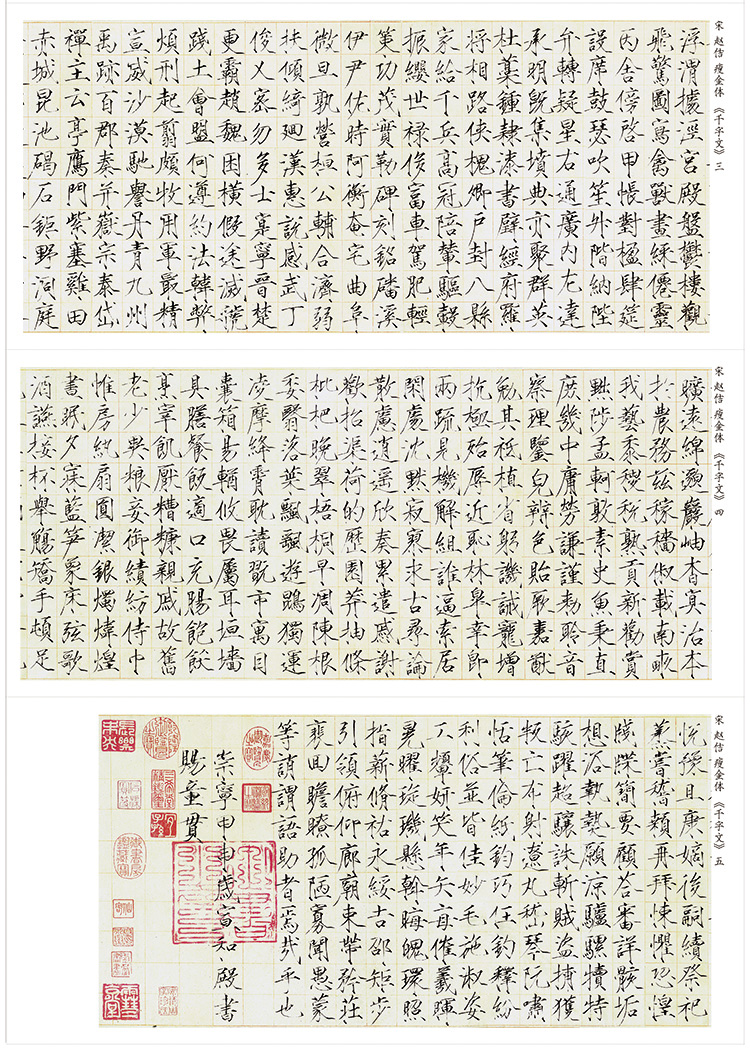 宋 赵佶 瘦金体 《千字文》 三
浮渭據涇宮殿盤鬱樓觀
飛驚圖寫禽獸畫綵僊靈
丙舍傍啓甲帳對楹肆筵
設席鼓瑟吹笙升階納陛
弁轉疑星右通廣內左達
承明既集墳典亦聚群英
杜藁鍾隸漆書壁經府羅
將相路俠槐卿戶封八縣
家給千兵高冠陪輦驅轂
振纓世祿侈富車駕肥輕
策功茂實勒碑刻銘磻溪
伊尹佐時阿衡奄宅曲阜
微旦孰營桓公輔合濟弱
扶傾綺迴漢惠說感武丁
俊乂密勿多士寔寧晉楚
更霸趙魏困橫假途滅虢
踐土會盟何遵約法韓弊
煩刑起翦頗牧用軍最精
宣威沙漠馳譽丹青九州
禹跡百郡秦并嶽宗泰岱
禪主云亭鴈門紫塞雞田
赤城昆池碣石鉅野洞庭
宋 赵佶 瘦金体 《千字文》 四
曠遠綿邈巖岫杳冥治本
於農務茲稼穡俶載南畝
我藝黍稷稅熟貢新勸賞
黜陟孟軻敦素史魚秉直
庶幾中庸勞謙謹勑聆音
察理鑒皃辨色貽厥嘉猷
勉其祗植省躬譏誡寵增
抗極殆辱近恥林皋幸即
兩疏見機解組誰逼索居
閑處沈默寂寥求古尋論
散慮逍遙欣奏累遣慼謝
歡招渠荷的歷園莽抽條
枇杷晚翠梧桐早凋陳根
委翳落葉飄颻遊鵾獨運
凌摩絳霄耽讀翫市寓目
囊箱易輶攸畏屬耳垣墻
具膳餐飯適口充腸飽飫
烹宰飢厭糟糠親戚故舊
老少異粮妾御績紡侍巾
帷房紈扇圓潔銀燭煒煌
晝眠夕寐藍笋象床弦歌
酒讌接杯舉觴矯手頓足
宋 赵佶 瘦金体 《千字文》 五
悅豫且康嫡後嗣續祭祀
蒸嘗稽顙再拜悚懼恐惶
牋牒簡要顧答審詳骸垢
想浴執熱願涼驢騾犢特
駭躍超驤誅斬賊盜捕獲
叛亡布射遼丸嵇琴阮嘯
恬筆倫紙鈞巧任釣釋紛
利俗並皆佳妙毛施淑姿
工顰妍笑年矢每催羲暉
晃曜琁璣懸斡晦魄環照
指薪脩祜永綏吉邵矩步
引領俯仰廊廟束帶矜莊
裴回瞻眺孤陋寡聞愚蒙
等誚謂語助者焉哉乎也
崇寧甲申歲宣和殿書
賜童貫